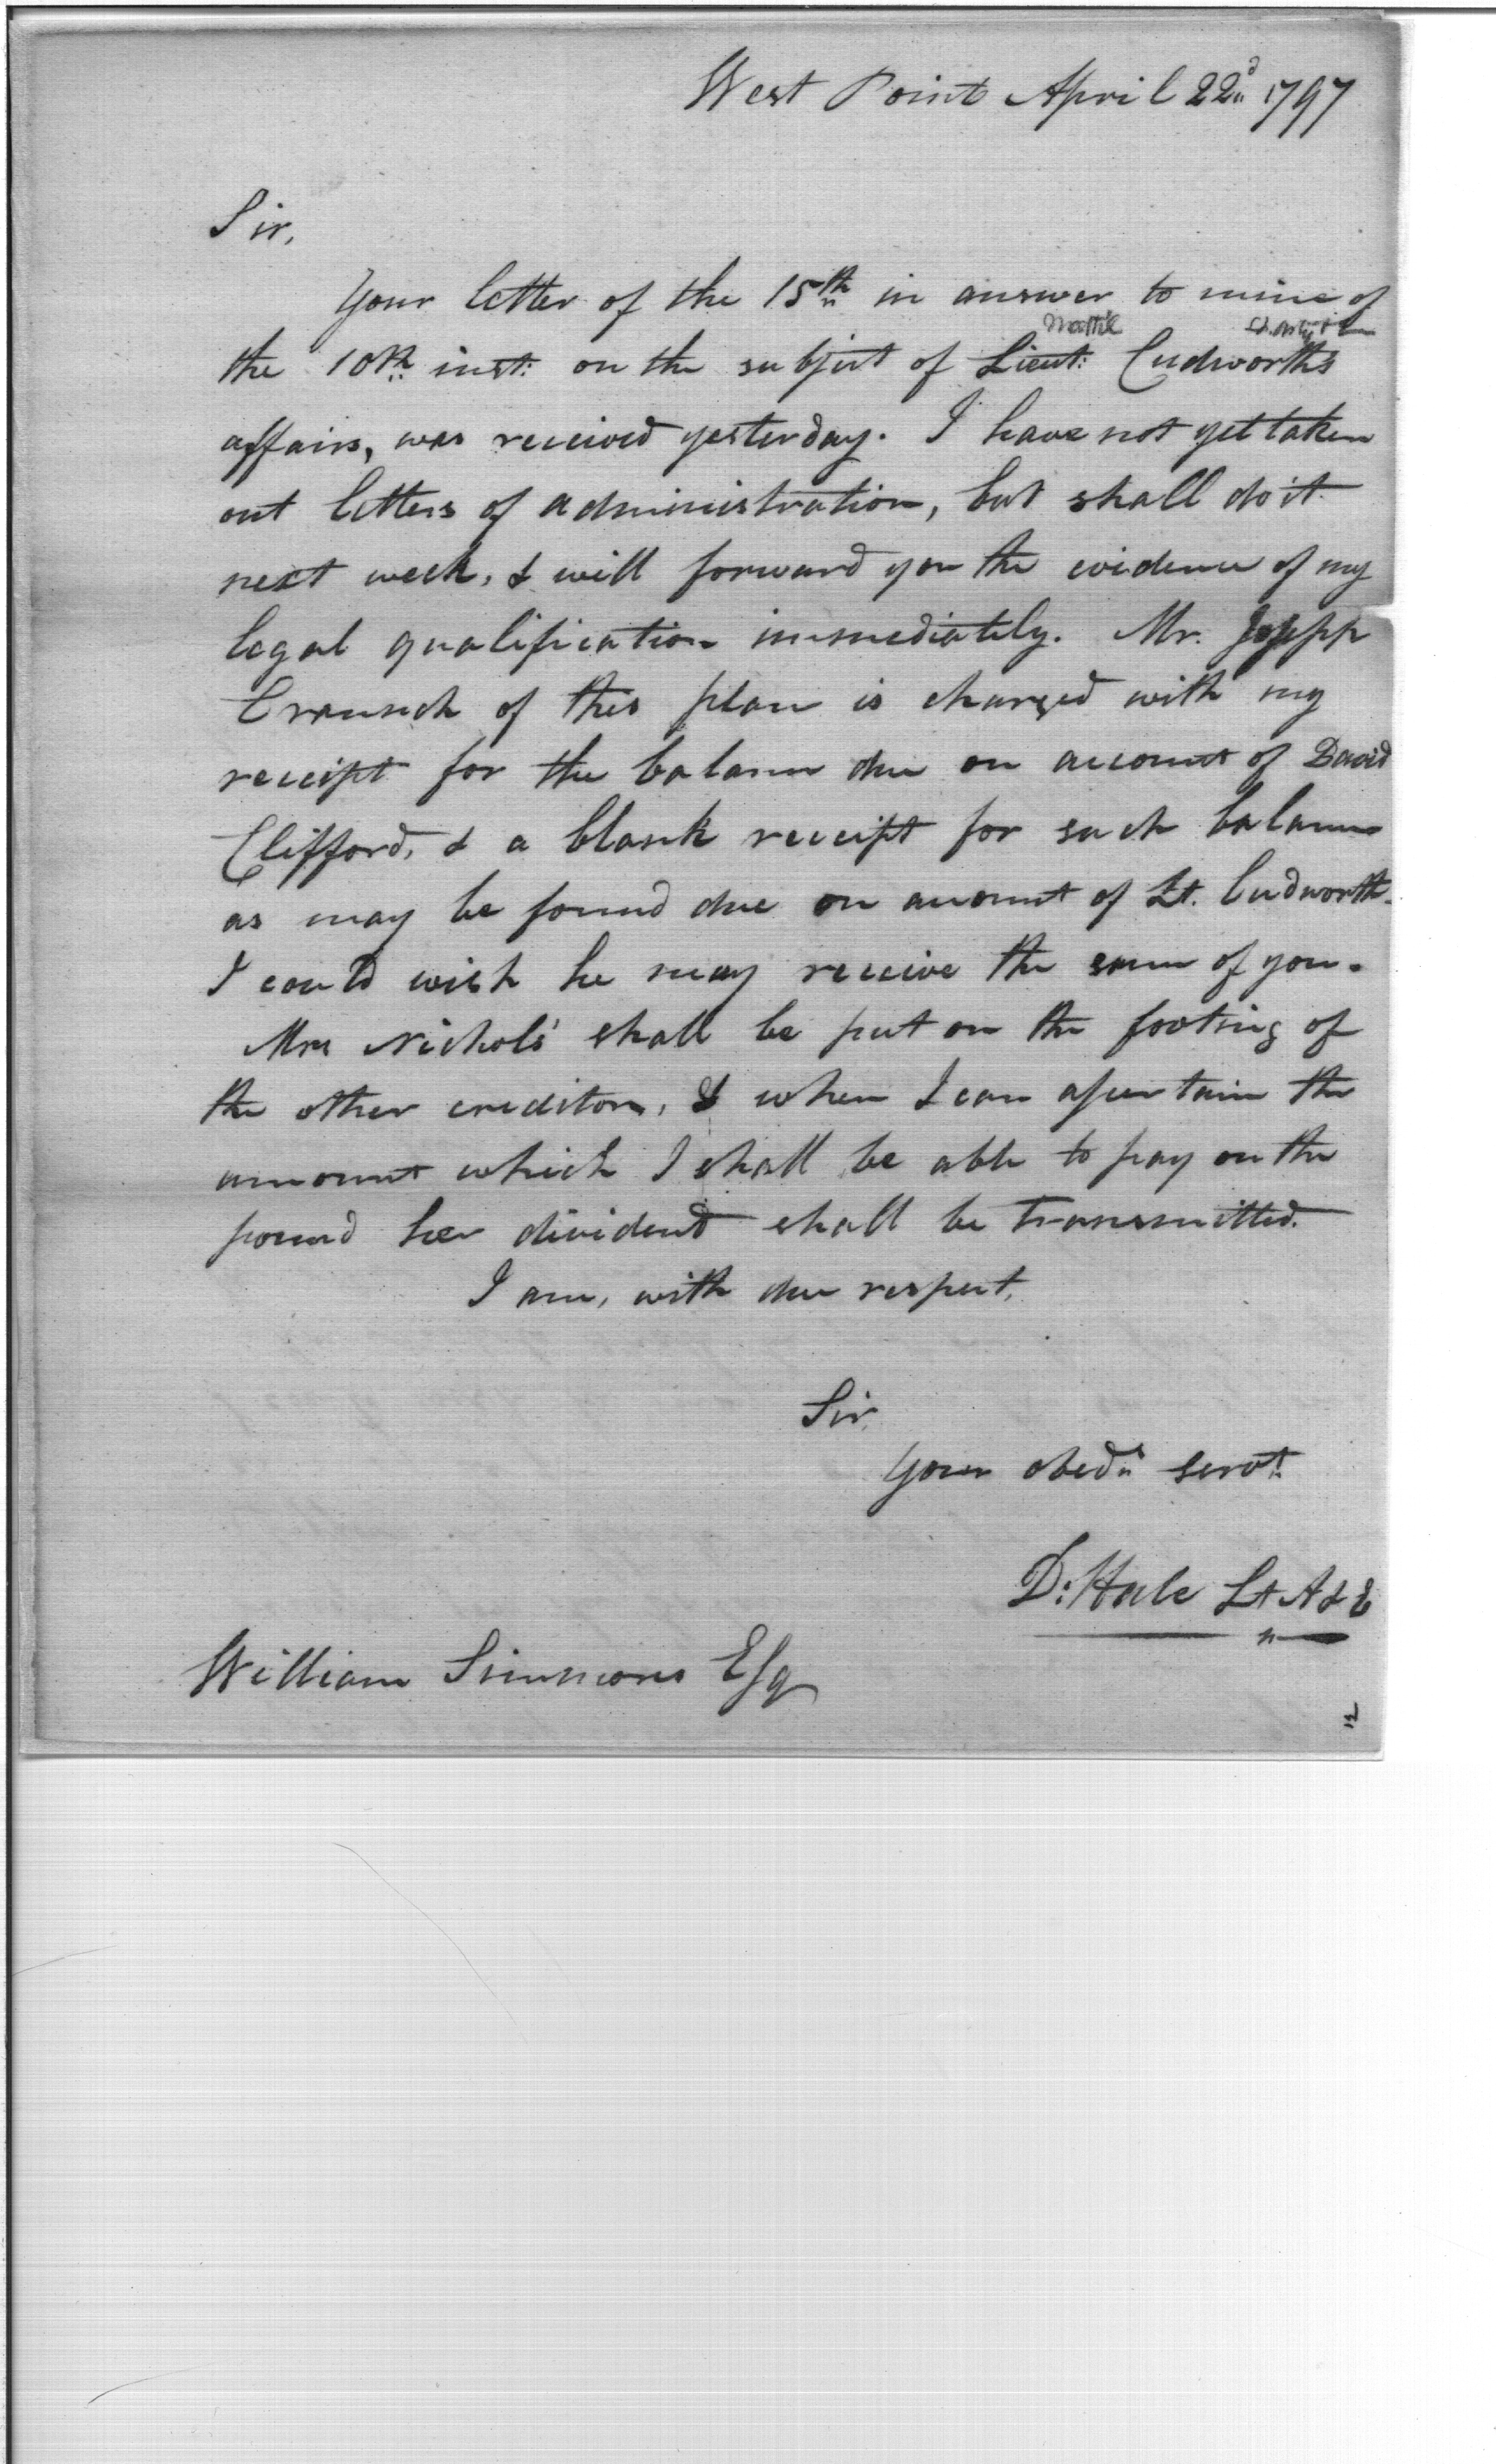 West Point April 22d 1797
Sir,
Your letter of the 15th in answer to mine of
the 10th inst: on the subject of Lieut: Cudworth's
affairs, was received yesterday. I have not yet taken
out letters of administration, but shall do it
next week, & will forward you the evidence of my
legal qualification immediately. Mr.
Crannch of this place is charged with my
receipt for the balance due on account of David
Clifford, & a blank receipt for such balance
as may be found due on account of Lt. Cudworth.
I could wish he may receive the same of you.
Mrs Nichols' shall be put on the footing of
the other creditors, & when I can ascertain the
amount which I shall be able to pay on the
pound her dividend shall be transmitted.
I am, with due respect,
Sir,
Your obedt servt:
D: Hale Lt A & E
William Simmons Esq